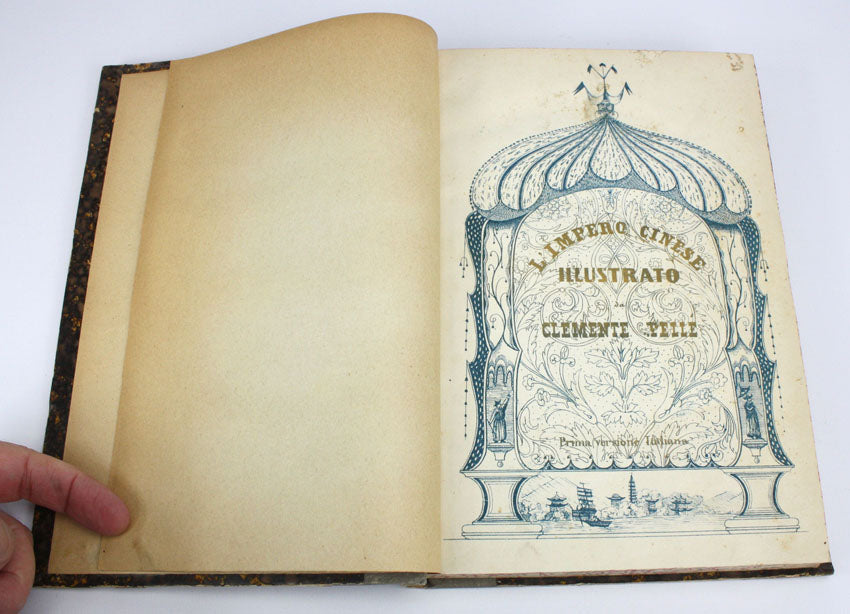 L'IMPERO CINESE
ILLUSTRATO
da
CLEMENTE PELLE
Prima versione Italiana